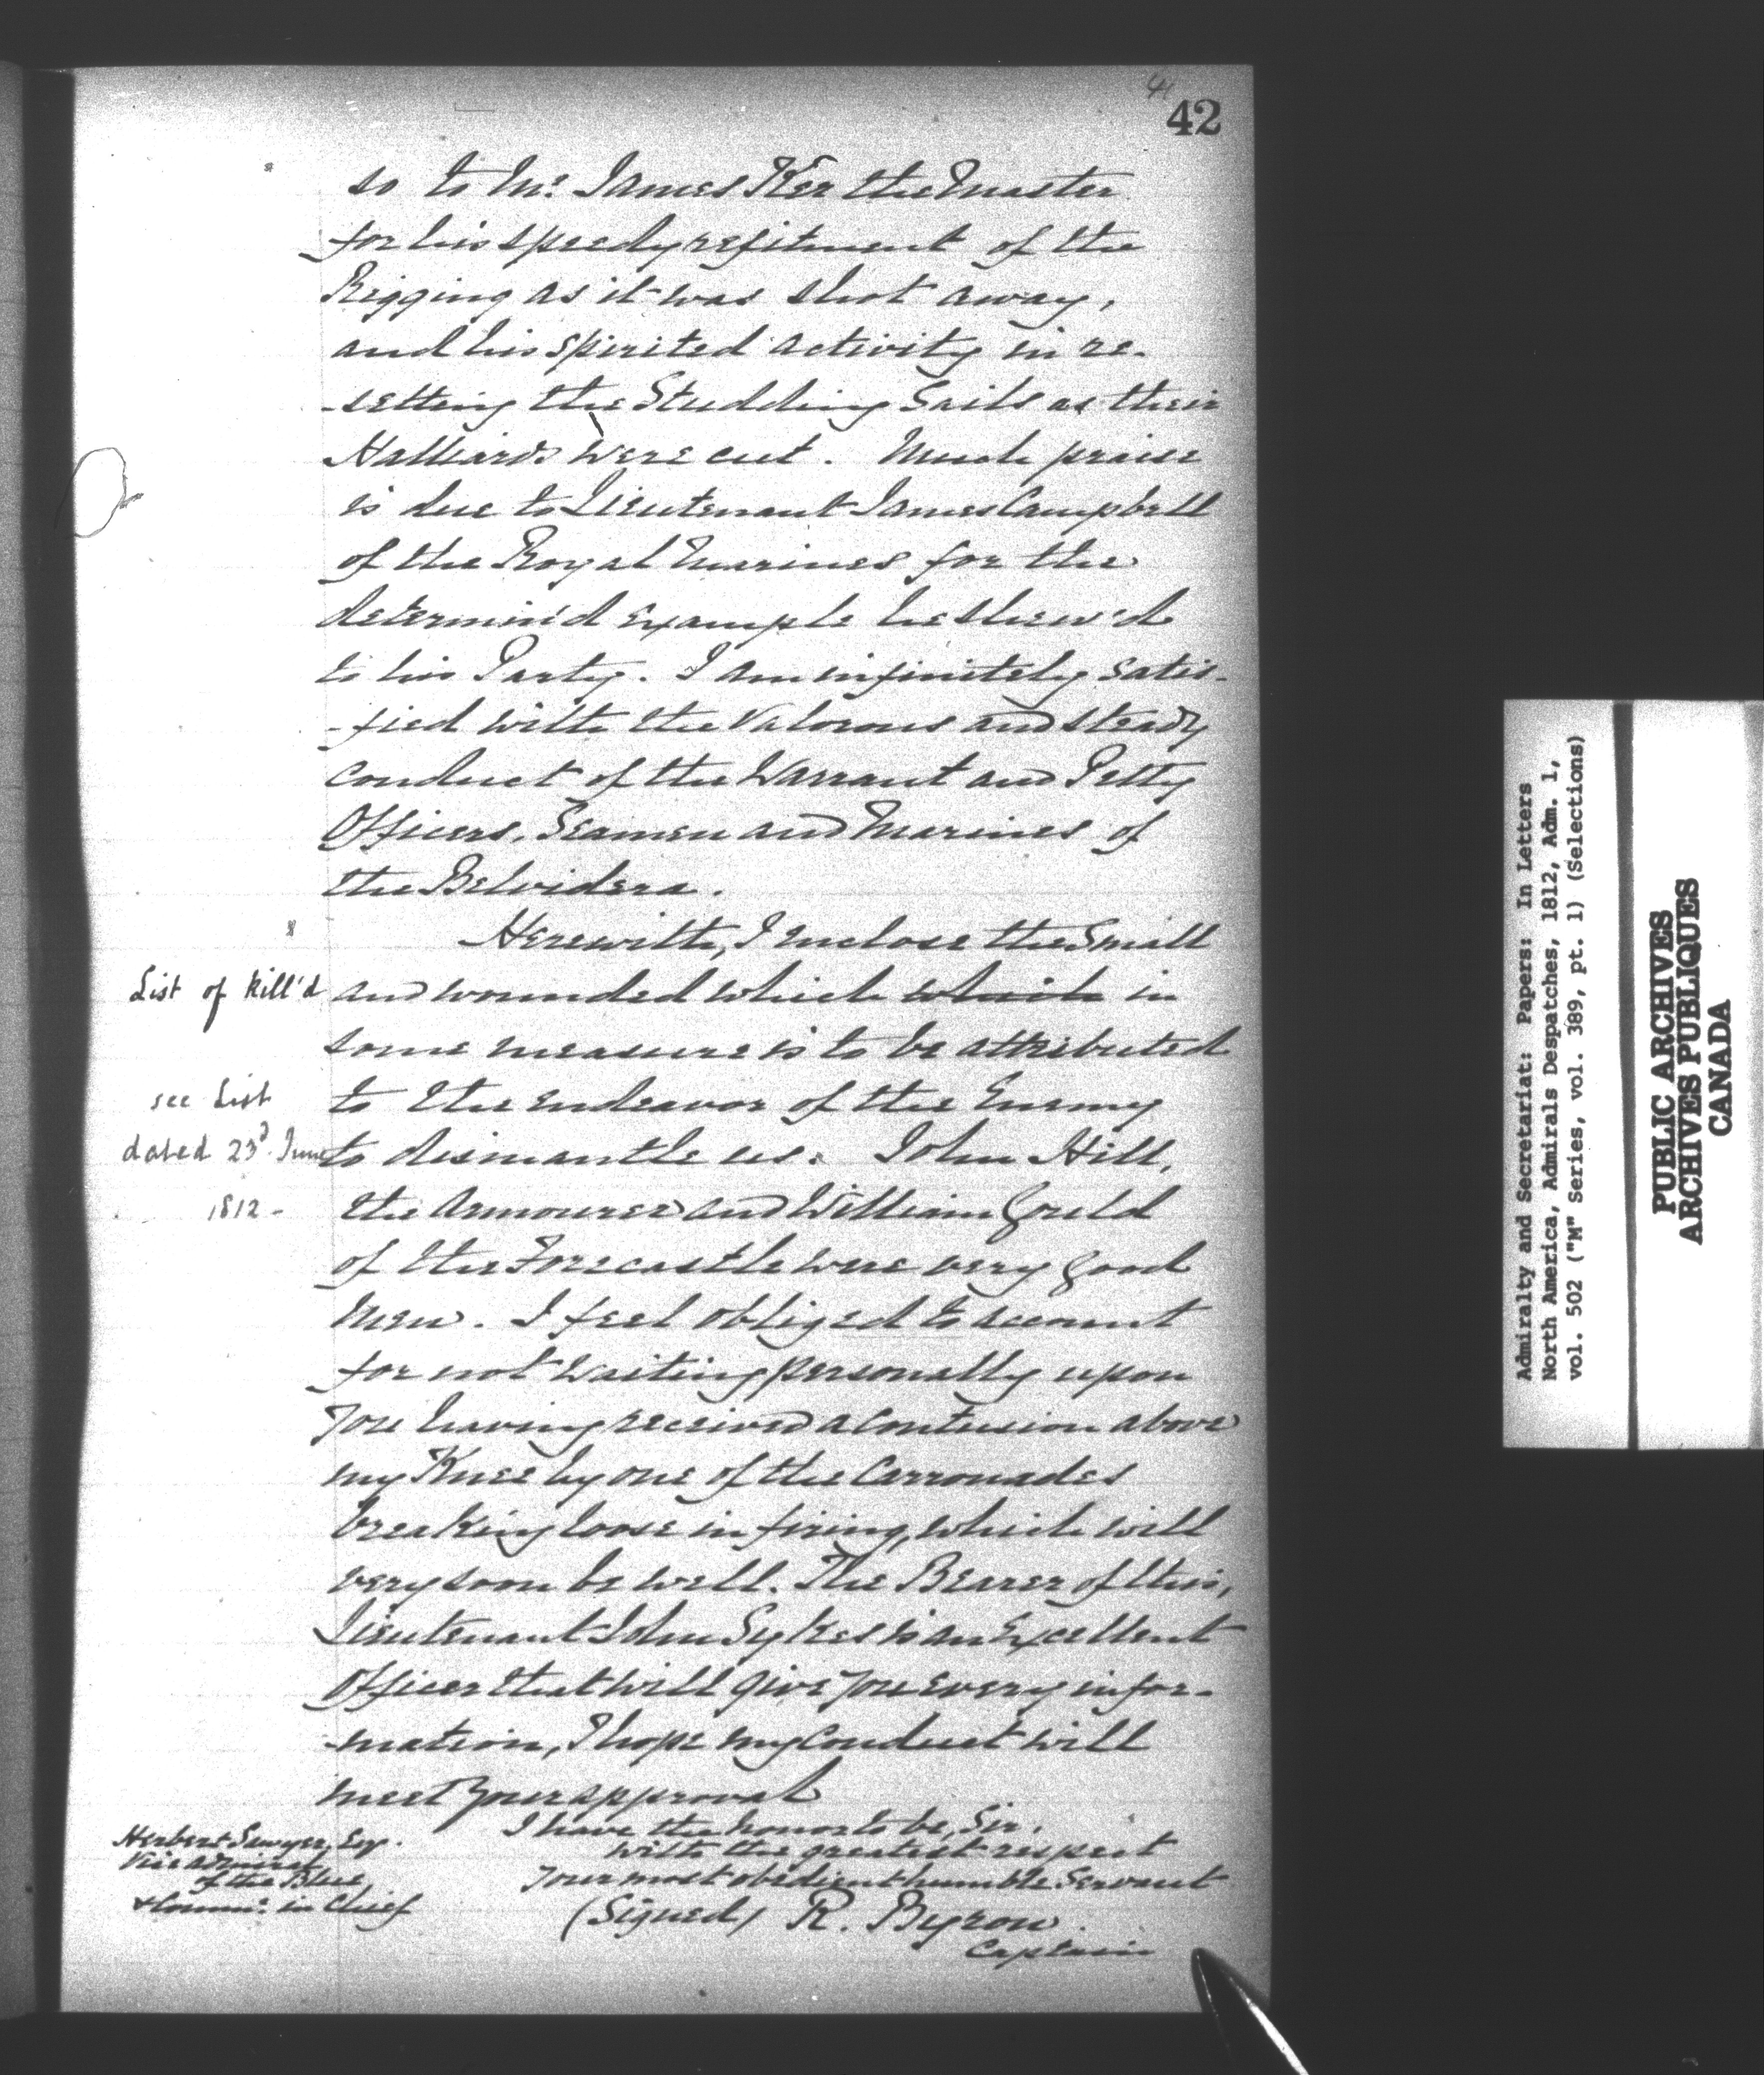 41
42
so to Mr. James Kerr the Master
for his speedy refitment of the
Rigging as it was shot away,
and his spirited activity in re-
-setting the Studding Sails as their
Halliards were cut. Much praise
is due to Lieutenant James Campbell
of the Royal Marines for the
determin'd example he shew'd
to his Party. I am infinitely satis-
-fied with the Valorous and steady
conduct of the Warrant and Petty
Officers, Seamen and Marines of
the Belvidera.
Herewith, I inclose the Small
List of kill'd and wounded which which in
some measure is to be attributed
see List to the endeavor of the Enemy
dated 23d June to dismantle us. John Hill,
1812- the Armourer and William Gould
of the Forecastle were very good
Men. I feel obliged to account
for not waiting personally upon
you having received a contusion above
my Knee by one of the Carronades
breaking loose in firing, which will
very soon be well. The Bearer of this,
Lieutenant John Sykes is an Excellent
Officer that will give you every infor-
-mation, I hope my conduct will
meet your approval
I have the honor to be, Sir,
with the greatest respect
Your most obedient humble Servant
(Signed) R. Byron
Captain
Herbert Sawyer, Esq.
Vice Admiral
of the Blue
& Comm. in Chief
Admiralty and Secretariat: Papers: In Letters
North America, Admirals Despatches, 1812, Adm. 1,
vol. 502 ("M" Series, vol. 389, pt. 1) (Selections)
PUBLIC ARCHIVES
ARCHIVES PUBLIQUES
CANADA